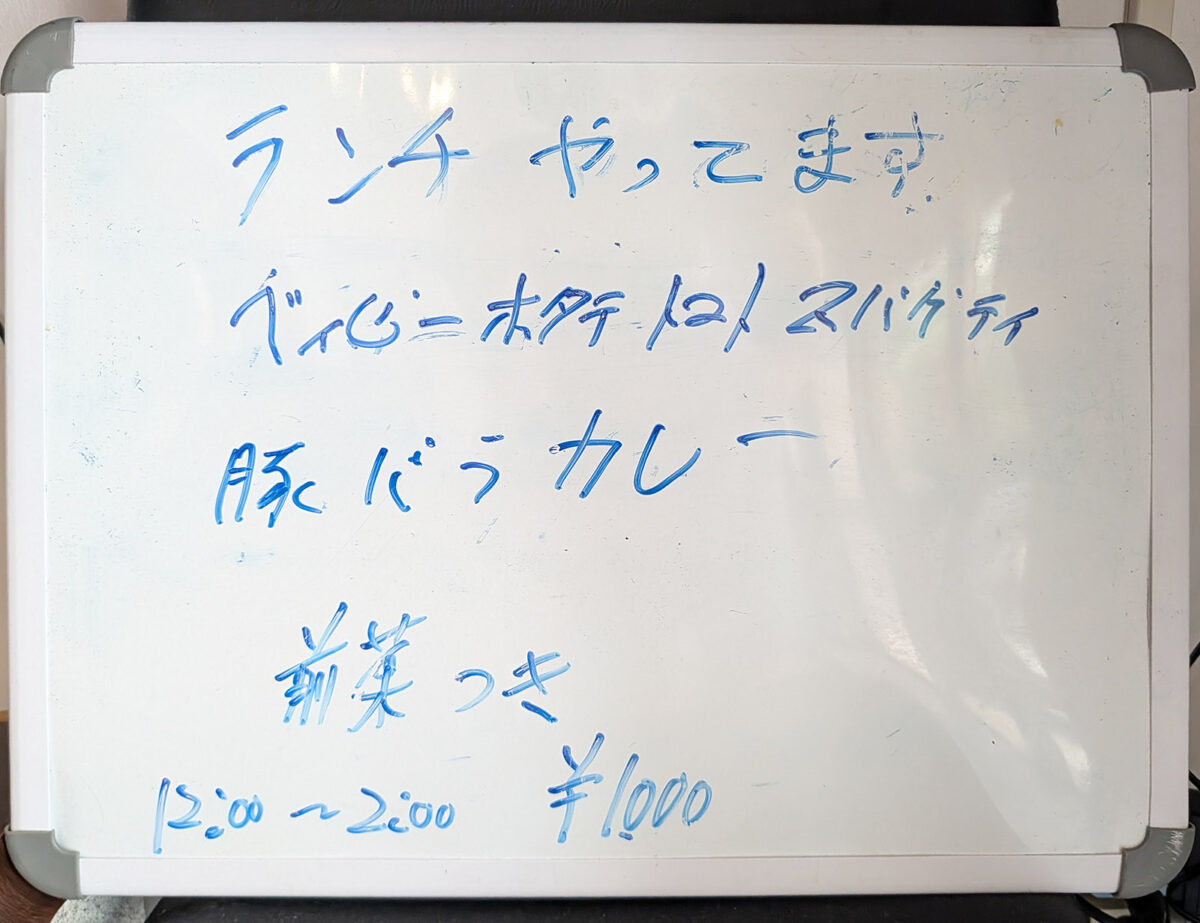 ランチ やってます
ベィビーホタテ トマト スパゲティ
豚バラカレー
前菜つき
12:00～2:00 ¥1,000